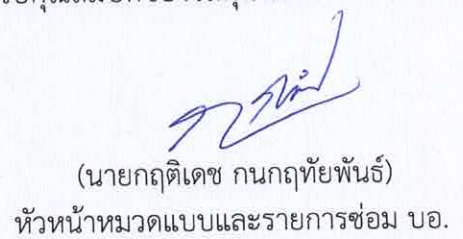 (นายกฤติเดช กนกฤทัยพันธ์)
หัวหน้าหมวดแบบและรายการซ่อม บอ.